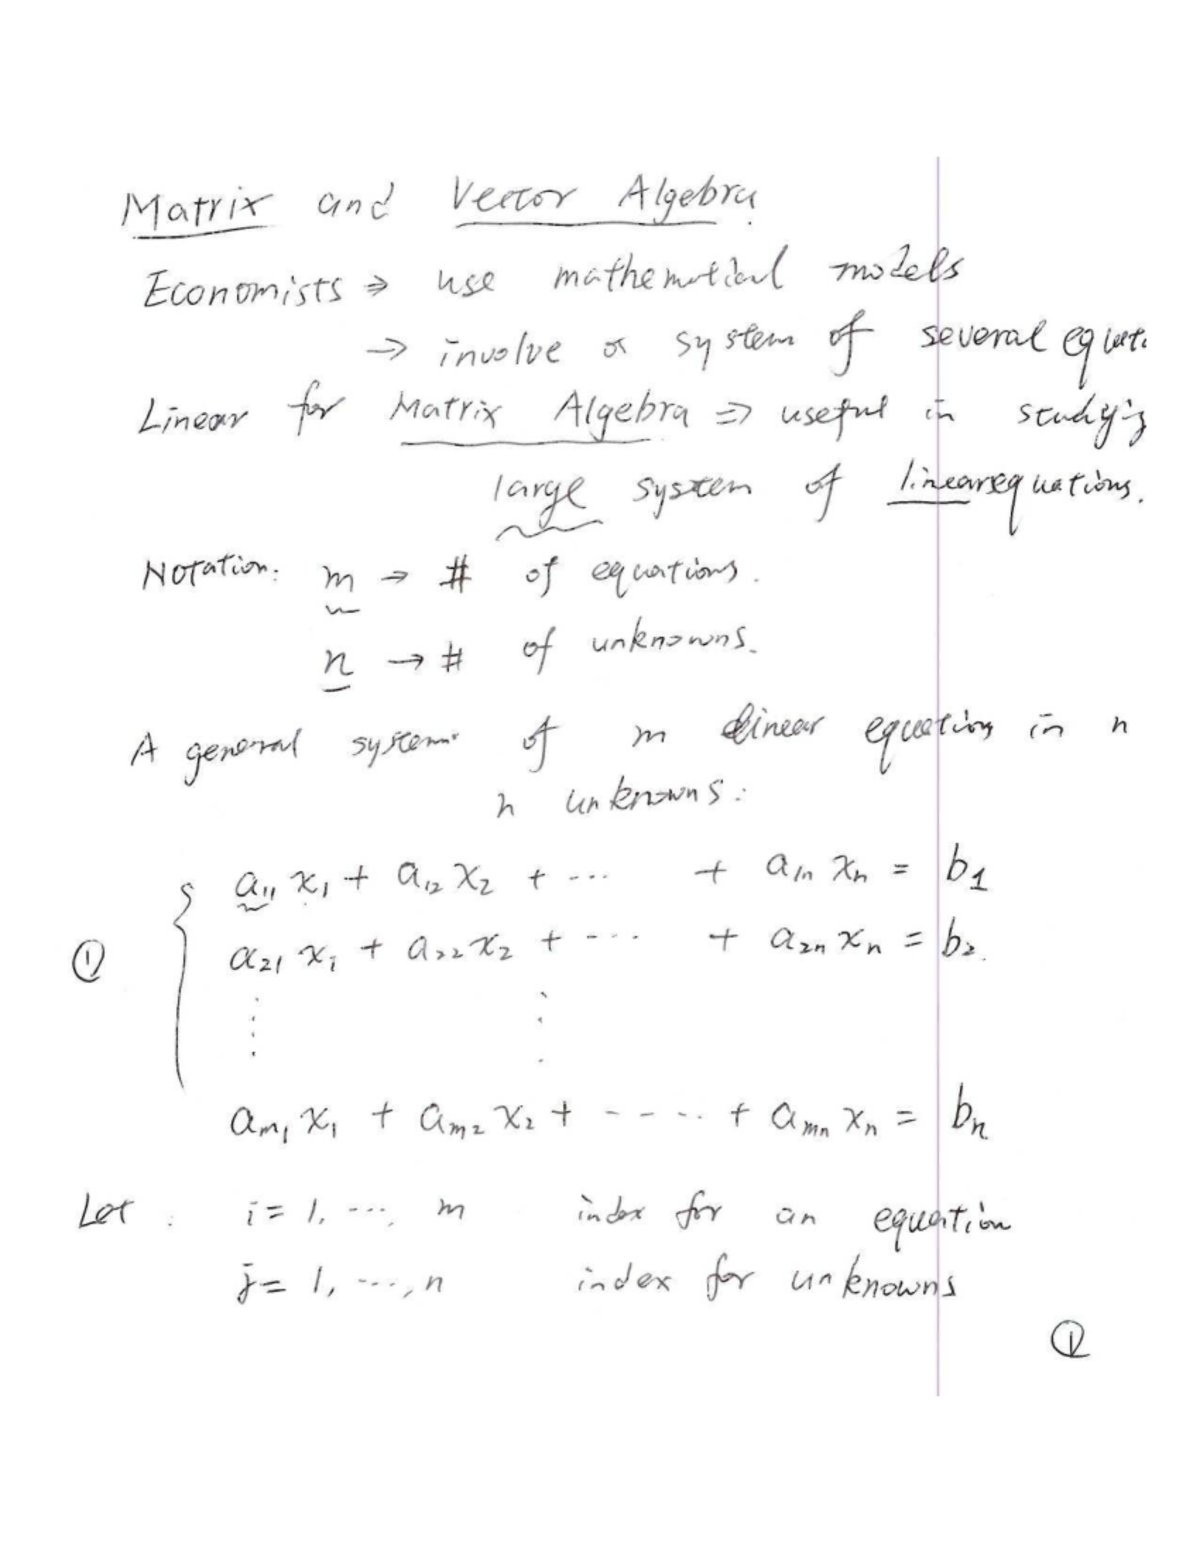 Matrix and Vector Algebra
Economists ⇒ use mathematical models
→ involve a system of several equati
Linear for Matrix Algebra ⇒ useful in studying
large system of linear equations.
Notation: m → # of equations.
n → # of unknowns.
A general system of m linear equations in n
n unknowns:
a₁₁ x₁ + a₁₂ x₂ + ... + a₁ₙ xₙ = b₁
① a₂₁ x₁ + a₂₂ x₂ + ... + a₂ₙ xₙ = b₂.
aₘ₁ x₁ + aₘ₂ x₂ + ..... + aₘₙ xₙ = bₙ
Let : i = 1, ..., m index for an equation
j = 1, ..., n index for unknowns
①